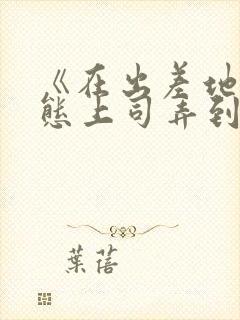 《在出差地
态上司弄到
葉蓓